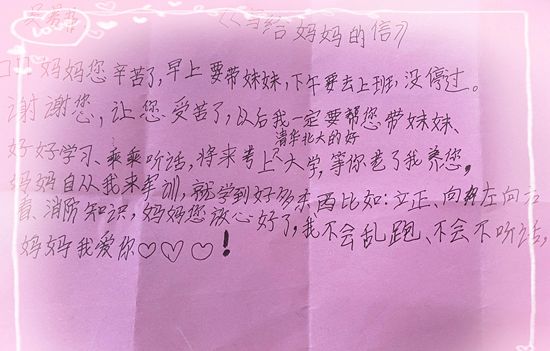 《写给妈妈的信》
妈妈您辛苦了,早上要带妹妹,下午要去上班,没停过。
谢谢您,让您受苦了,以后我一定要帮您带妹妹、
清华北大的好
好好学习、乘乘听话,将来考上大学,等你老了我养您,
妈妈自从我来军训,就学到好多东西比如:立正、向左向右
看、消防知识,妈妈您放心好了,我不会乱跑、不会不听话,
妈妈我爱你♡♡♡!